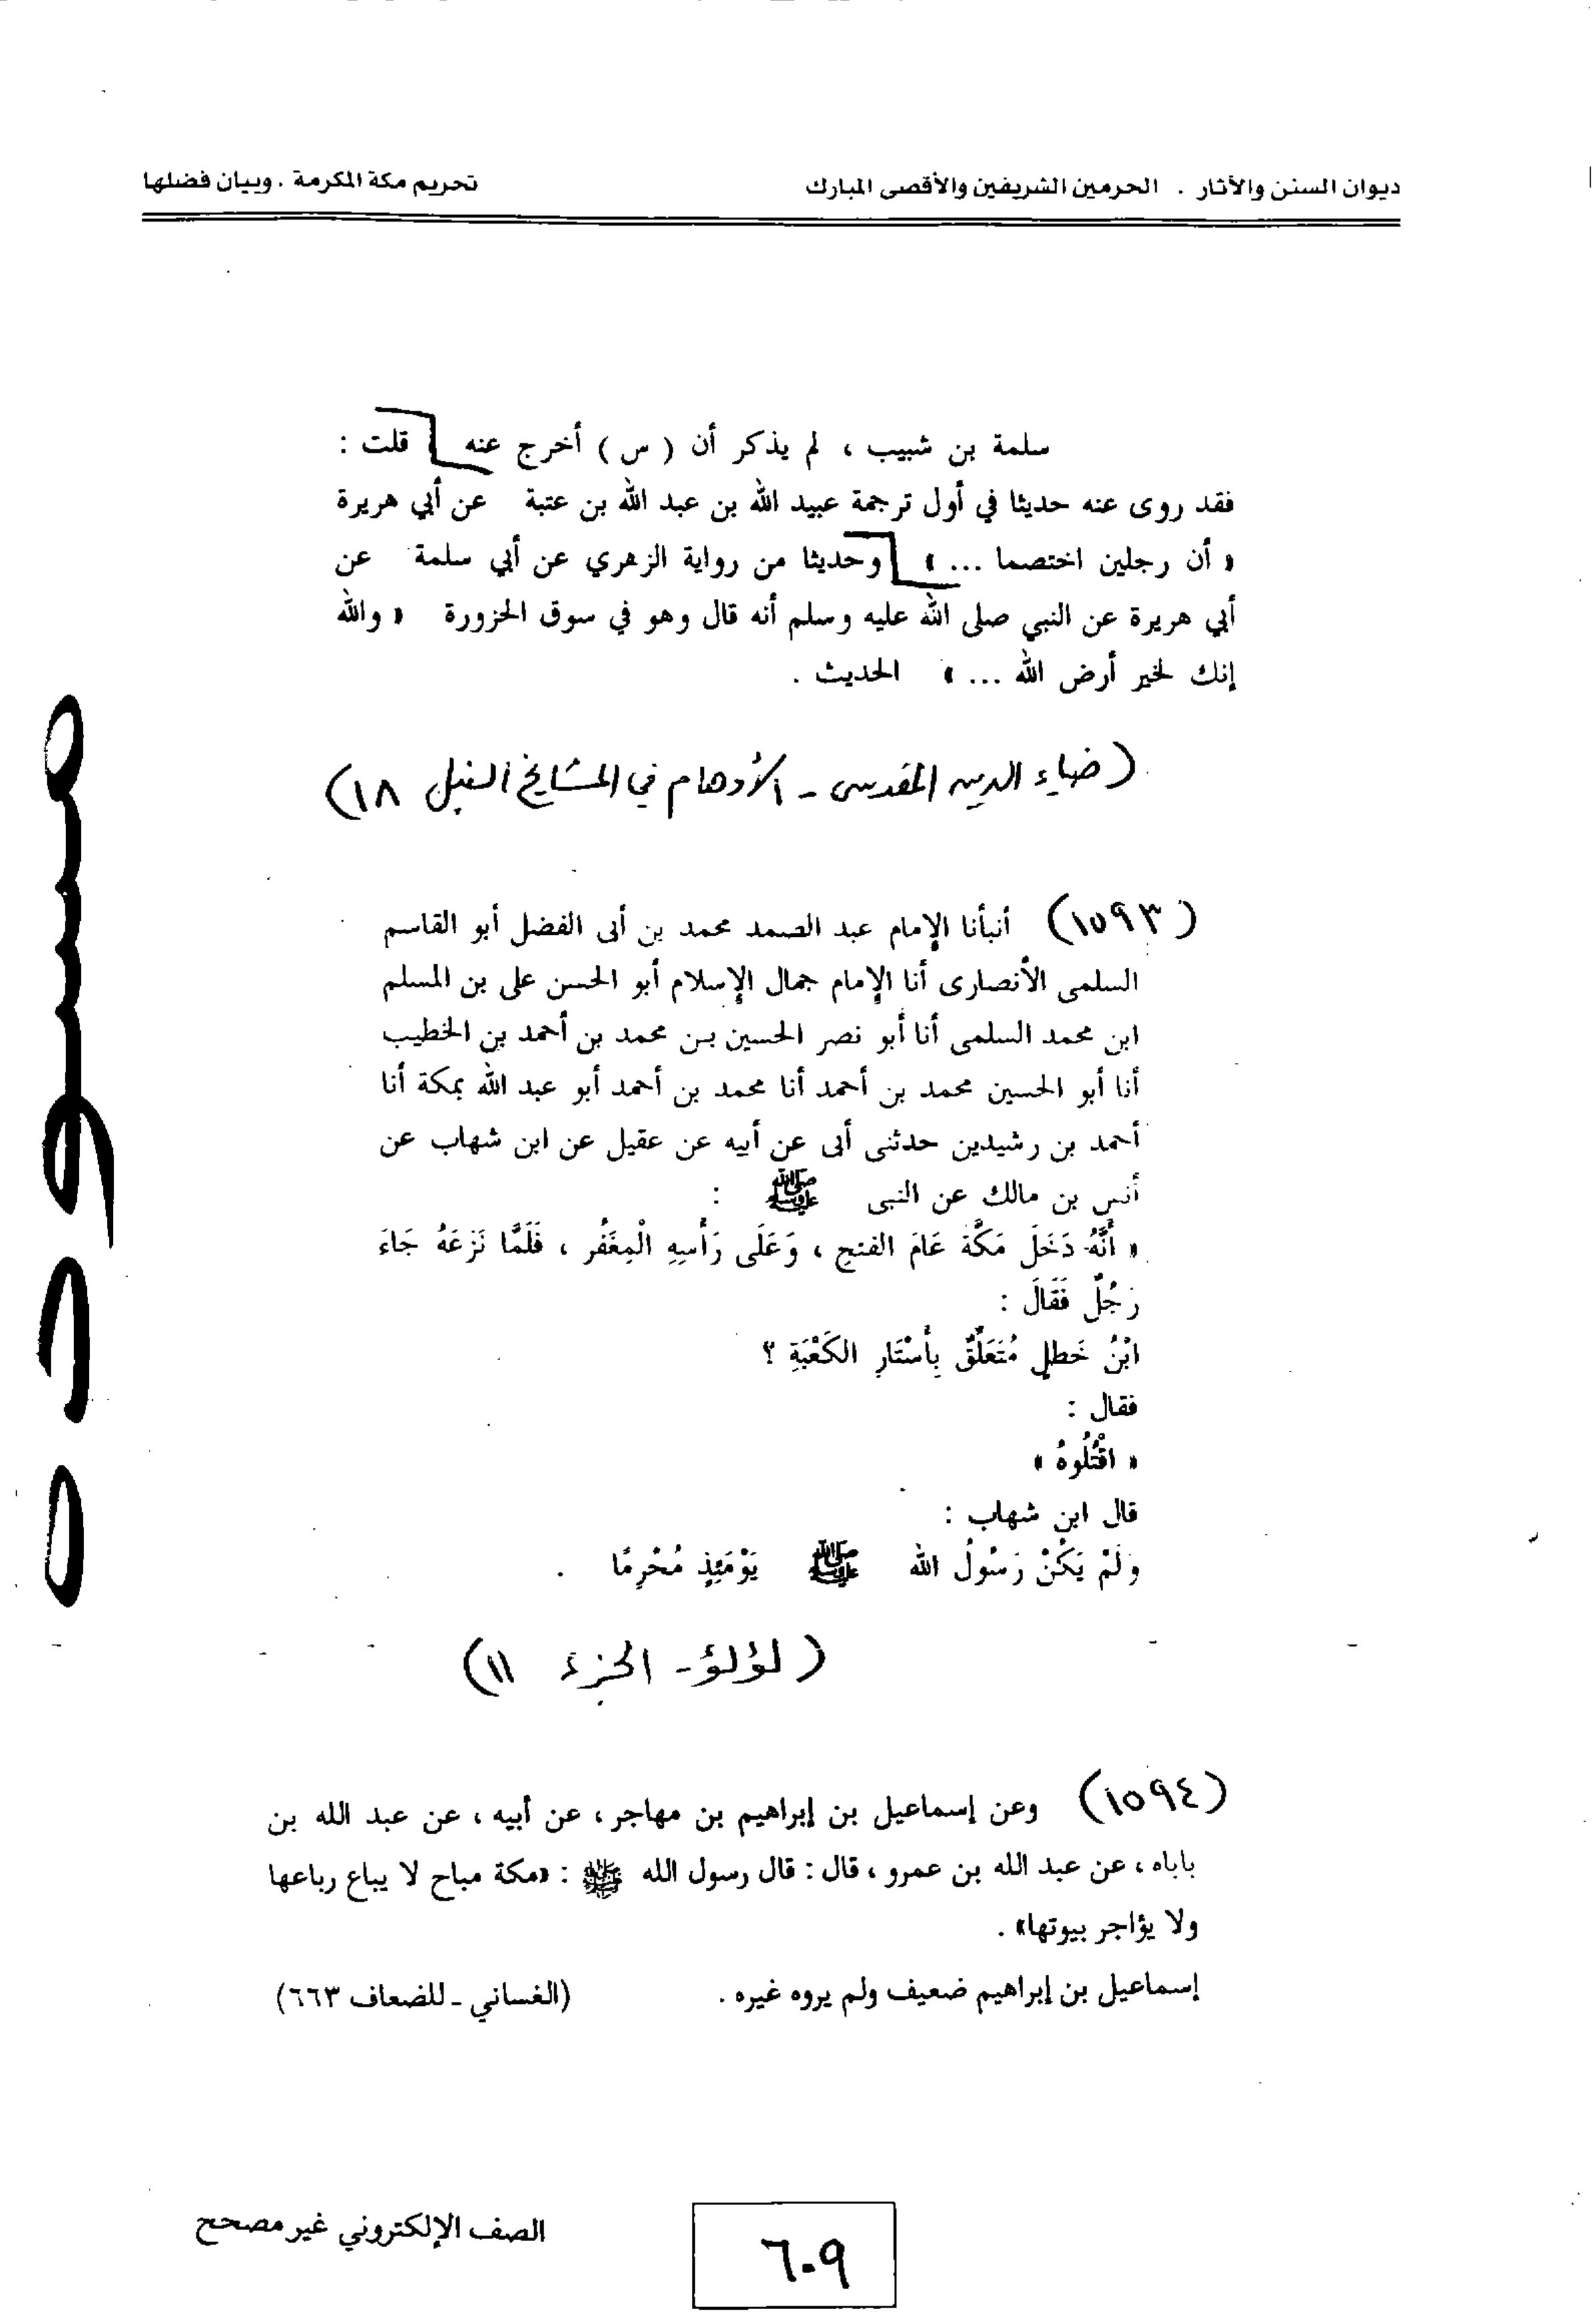 ديوان السنن والآثار . الحرمين الشريفين والأقصى المبارك
تحريم مكة المكرمة . وبيان فضلها
سلمة بن شبيب ، لم يذكر أن ( س ) أخرج عنه قلت :
فقد روى عنه حديثا في أول ترجمة عبيد الله بن عبد الله بن عتبة عن أبي هريرة
« أن رجلين اختصما ... » وحديثا من رواية الزهري عن أبي سلمة عن
أبي هريرة عن النبي صلى الله عليه وسلم أنه قال وهو في سوق الحزورة « والله
إنك لخير أرض الله ... » الحديث .
( ضياء الدين المقدسي - الأوهام في المشايخ النبل ١٨ )
( ١٥٩٣ ) أنبأنا الإمام عبد الصمد محمد بن أبى الفضل أبو القاسم
السلمى الأنصارى أنا الإمام جمال الإسلام أبو الحسن على بن المسلم
ابن محمد السلمى أنا أبو نصر الحسين بن محمد بن أحمد بن الخطيب
أنا أبو الحسين محمد بن أحمد أنا محمد بن أحمد أبو عبد الله بمكة أنا
أحمد بن رشيدين حدثنى أبى عن أبيه عن عقيل عن ابن شهاب عن
أنس بن مالك عن النبى ﷺ :
« أَنَّهُ دَخَلَ مَكَّةَ عَامَ الفتحِ ، وَعَلَى رَأْسِهِ الْمِغَفُر ، فَلَمَّا نَزَعَهُ جَاءَ
رَجُلٌ فَقَالَ :
ابْنُ خَطلٍ مُتَعَلِّقٌ بِأَسْتَارِ الكَعْبَةِ ؟
فقال :
« اقْتُلُوهُ »
قال ابن شهاب :
وَلَمْ يَكُنْ رَسُولُ الله ﷺ يَوْمَئِذٍ مُحْرِمًا .
( لؤلؤ - الجزء ١١ )
( ١٥٩٤ ) وعن إسماعيل بن إبراهيم بن مهاجر ، عن أبيه ، عن عبد الله بن
باباه ، عن عبد الله بن عمرو ، قال : قال رسول الله ﷺ : «مكة مباح لا يباع رباعها
ولا يؤاجر بيوتها» .
إسماعيل بن إبراهيم ضعيف ولم يروه غيره . (الغساني - للضعاف ٦٦٣)
مسودة
الصف الإلكتروني غير مصحح
٦٠٩